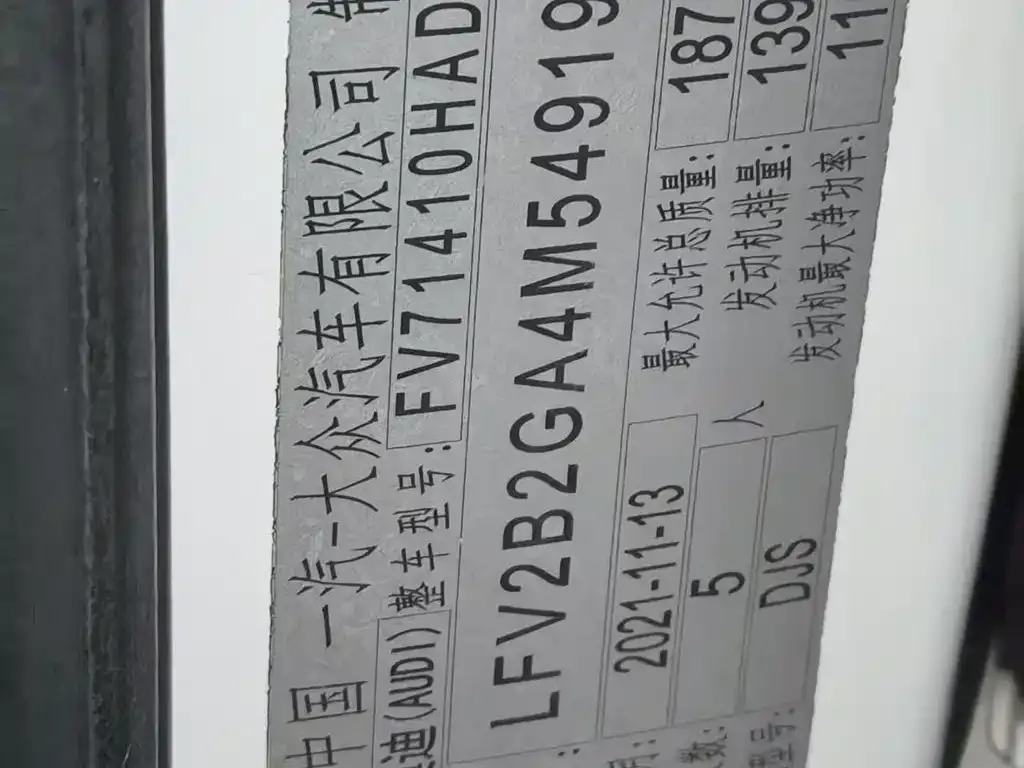 中国 一汽-大众汽车有限公司 制
迪(AUDI) 整车型号: FV71410HAD
LFV2B2GA4M54919
2021-11-13 最大允许总质量: 187
数: 5 人 发动机排量: 139
型号: DJS 发动机最大净功率: 11